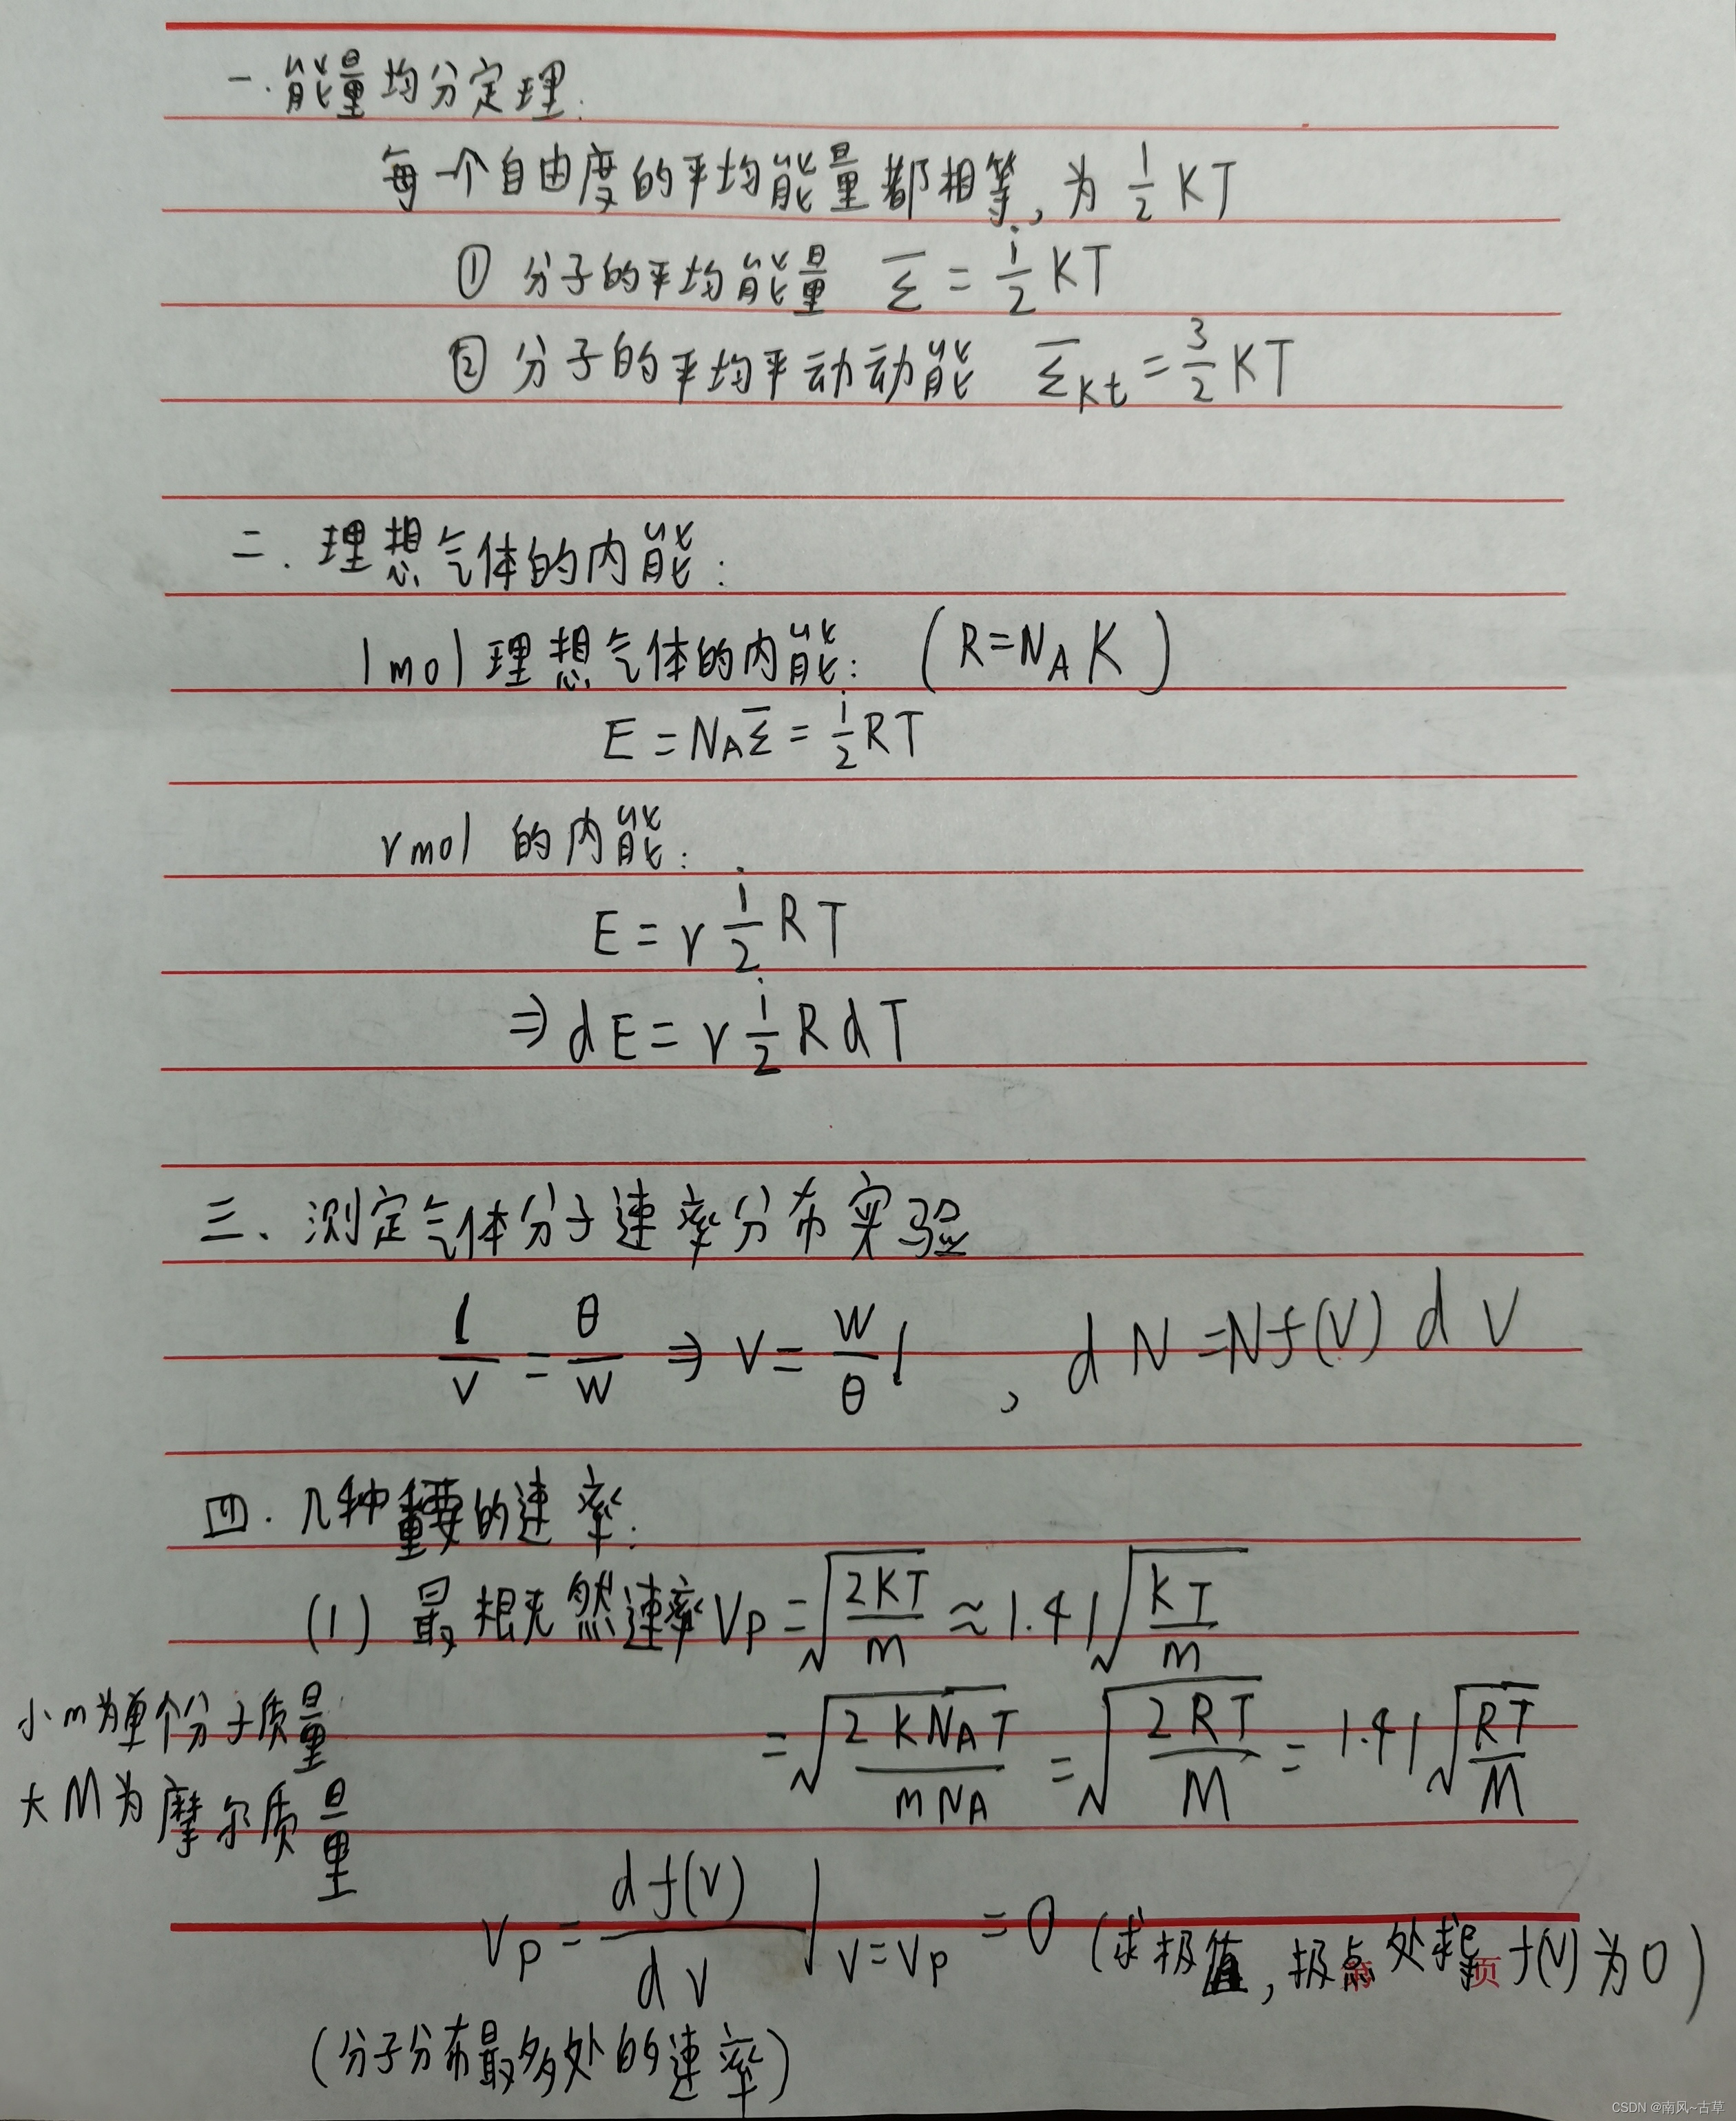 一.能量均分定理:
每一个自由度的平均能量都相等,为 1/2 KT
① 分子的平均能量 ε̅ = i/2 KT
② 分子的平均平动动能 ε̅kt = 3/2 KT
二.理想气体的内能:
1mol理想气体的内能: (R=N_A K)
E = N_A ε̅ = i/2 RT
νmol 的内能:
E = ν i/2 RT
⇒ dE = ν i/2 R dT
三、测定气体分子速率分布实验
l/v = θ/w ⇒ v = w/θ l , dN = Nf(v) dv
四.几种重要的速率:
(1) 最概然速率 Vp = √(2KT/m) ≈ 1.41√(KT/m)
小m为单个分子质量
= √(2KN_AT/mN_A) = √(2RT/M) = 1.41√(RT/M)
大M为摩尔质量
Vp = df(v)/dv |v=vp = 0 (求极值,极点处 f(v)为0)
第 页
(分子分布最多处的速率)
CSDN @南风~古草